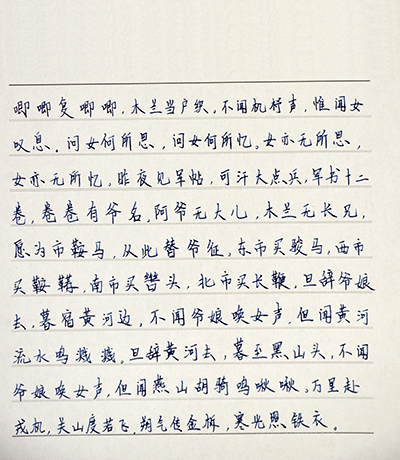 唧唧复唧唧，木兰当户织。不闻机杼声，惟闻女
叹息。问女何所思，问女何所忆。女亦无所思，
女亦无所忆，昨夜见军帖，可汗大点兵，军书十二
卷，卷卷有爷名，阿爷无大儿，木兰无长兄，
愿为市鞍马，从此替爷征，东市买骏马，西市
买鞍鞯，南市买辔头，北市买长鞭，旦辞爷娘
去，暮宿黄河边，不闻爷娘唤女声，但闻黄河
流水鸣溅溅。旦辞黄河去，暮至黑山头，不闻
爷娘唤女声，但闻燕山胡骑鸣啾啾。万里赴
戎机，关山度若飞，朔气传金柝，寒光照铁衣。